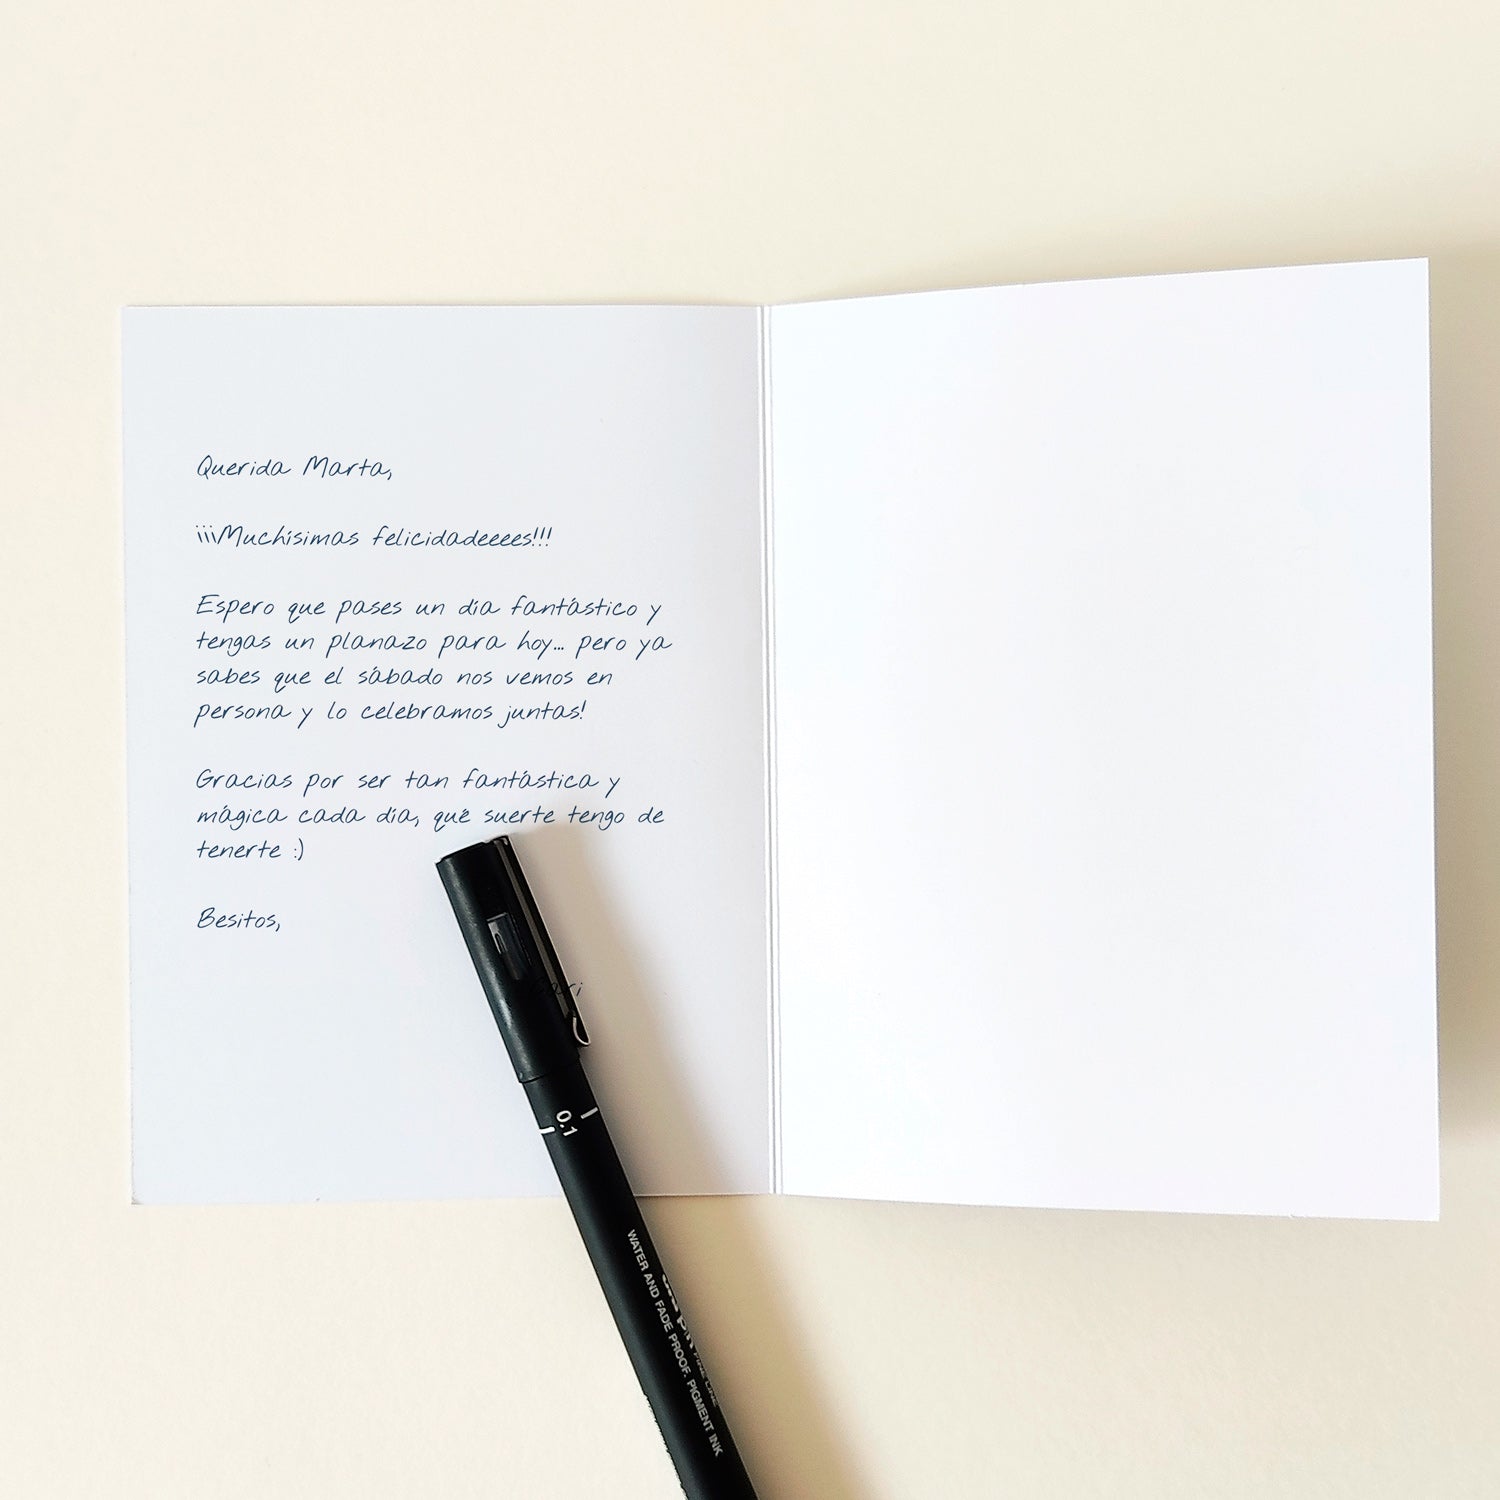 Querida Marta,
¡¡¡Muchísimas felicidadeeees!!!
Espero que pases un día fantástico y
tengas un planazo para hoy... pero ya
sabes que el sábado nos vemos en
persona y lo celebramos juntas!
Gracias por ser tan fantástica y
mágica cada día, qué suerte tengo de
tenerte :)
Besitos,
0.1
FINE LINE
WATER AND FADE PROOF. PIGMENT INK